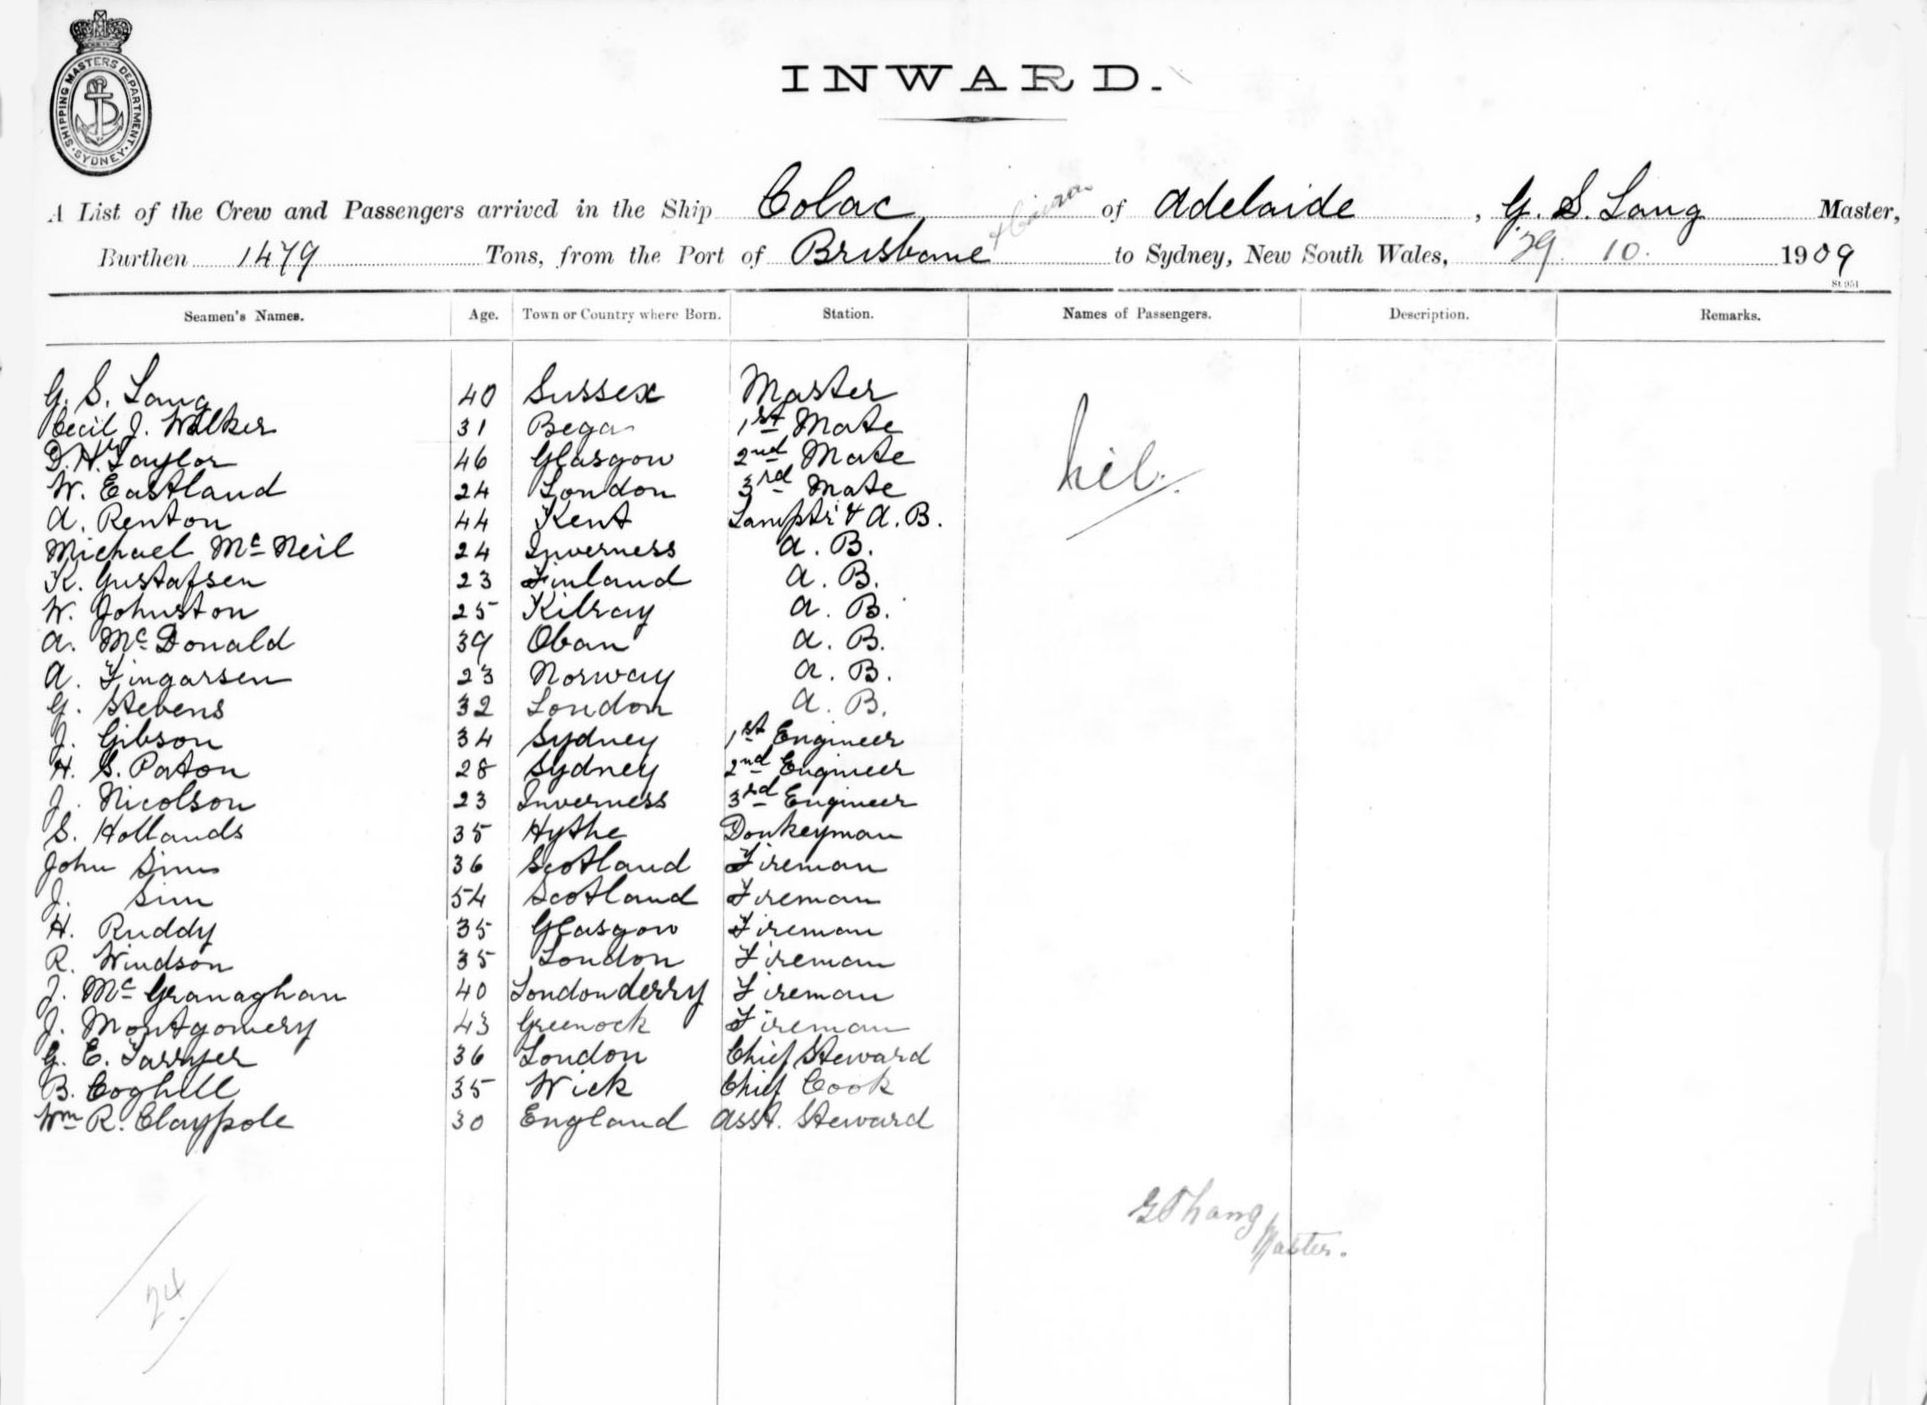 SHIPPING MASTERS DEPARTMENT. SYDNEY
INWARD.
A List of the Crew and Passengers arrived in the Ship Colac, of Adelaide, G. S. Lang Master,
Burthen 1479 Tons, from the Port of Brisbane to Sydney, New South Wales, 29. 10. 1909
St. 951
Seamen's Names. Age. Town or Country where Born. Station. Names of Passengers. Description. Remarks.
G. S. Lang 40 Sussex Master
Cecil J. Walker 31 Bega 1st Mate
D. H. Taylor 46 Glasgow 2nd Mate
W. Eastland 24 London 3rd Mate
A. Renton 44 Kent Lamptr & A. B.
Michael Mc Neil 24 Inverness A. B.
K. Gustafsen 23 Finland A. B.
W. Johnston 25 Kilray A. B.
A. Mc Donald 39 Oban A. B.
A. Fingarsen 23 Norway A. B.
G. Stevens 32 London A. B.
J. Gibson 34 Sydney 1st Engineer
H. S. Paton 28 Sydney 2nd Engineer
J. Nicolson 23 Inverness 3rd Engineer
S. Hollands 35 Hythe Donkeyman
John Sim 36 Scotland Fireman
J. Sim 54 Scotland Fireman
H. Ruddy 35 Glasgow Fireman
R. Windson 35 London Fireman
J. Mc Granaghan 40 Londonderry Fireman
J. Montgomery 43 Greenock Fireman
G. E. Sawyer 36 London Chief Steward
B. Coghill 35 Wick Chief Cook
Wm R. Claypole 30 England Asst. Steward
nil.
G S Lang
Master.
24